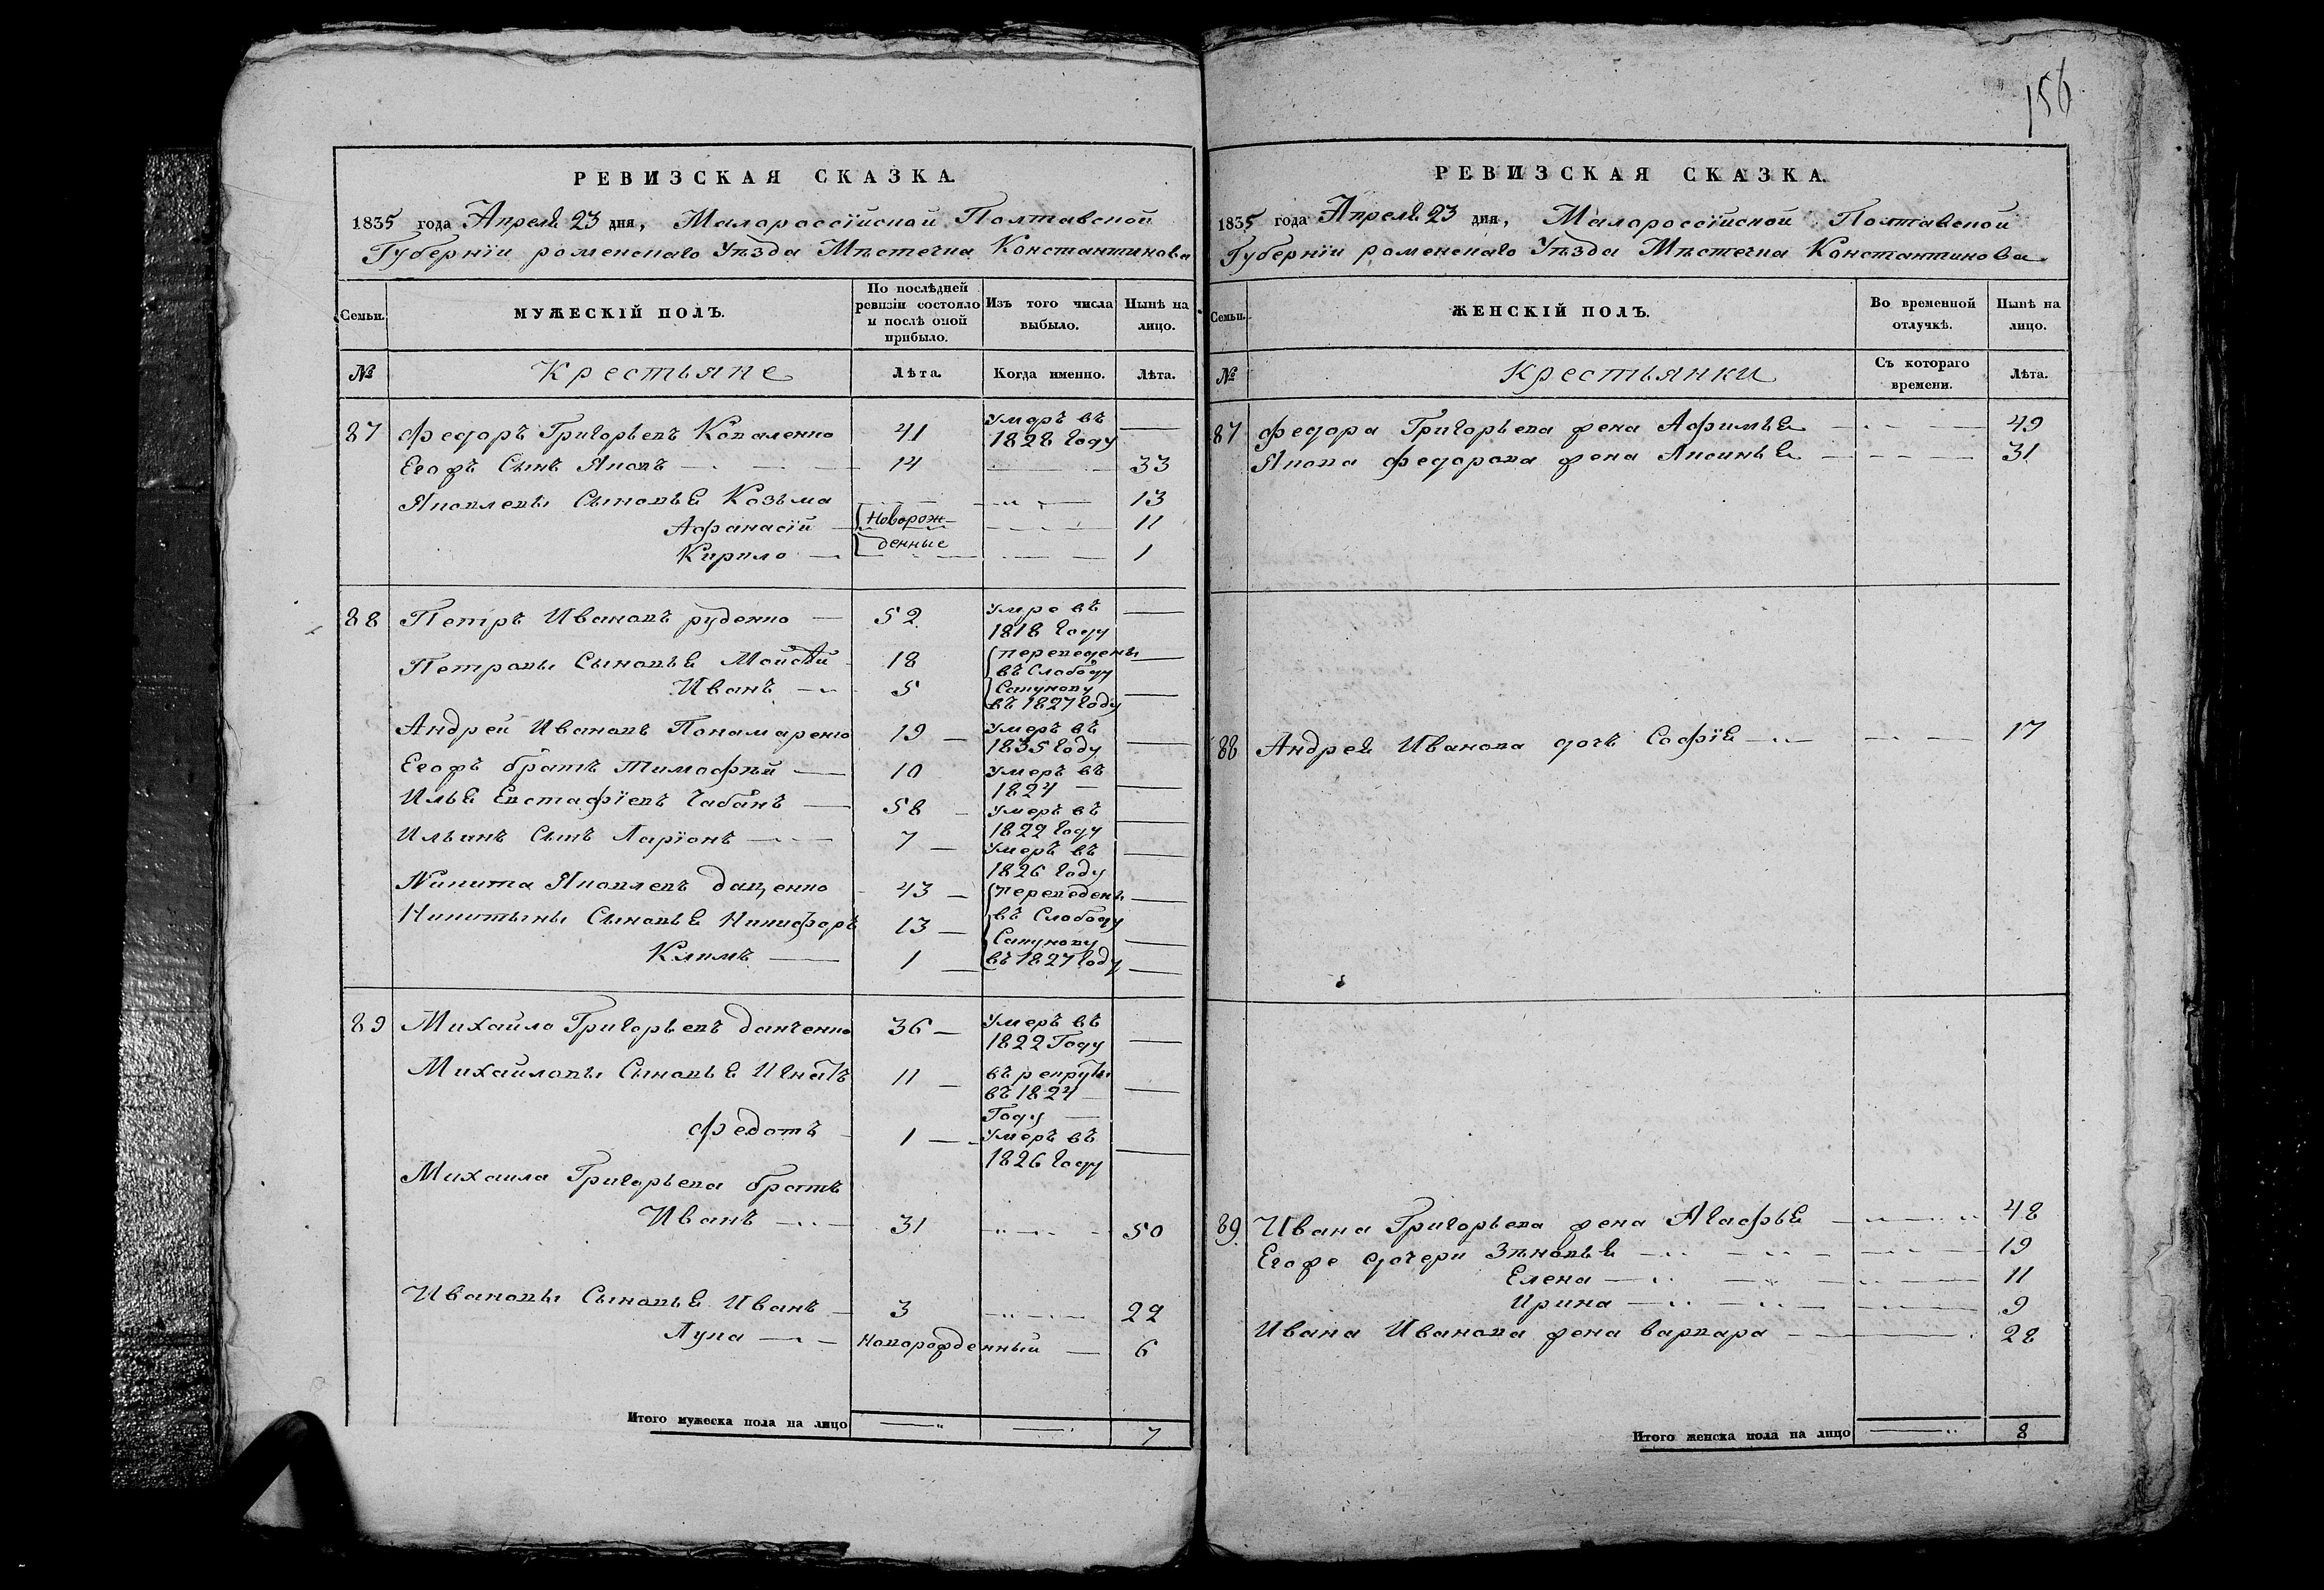 156
РЕВИЗСКАЯ СКАЗКА.
1835 года Апреля 23 дня, Малороссійской Полтавской
Губерніи роменскаго Уѣзда Мѣстечка Константинова
Семьи.
МУЖЕСКІЙ ПОЛЪ.
По послѣдней ревизіи состояло и послѣ оной прибыло.
Изъ того числа выбыло.
Нынѣ на лицо.
№
Крестьяне
Лѣта.
Когда именно.
Лѣта.
87 Федоръ Григорьевъ Коваленко 41 Умеръ въ 1828 году
Егожъ Сынъ Яковъ 14 33
Яковлевы Сыновья Козьма 13
Афанасій Новорож- 11
Кирило денные 1
88 Петръ Ивановъ руденко 52 Умре въ 1818 году
Петровы Сыновья Мойсѣй 18 переведены въ Слободу
Иванъ 5 Сакунову въ 1827 году
Андрей Ивановъ Понамаренко 19 Умеръ въ 1835 году
Егожъ братъ Тимофѣй 10 Умеръ въ 1824
Илья Евстафіевъ Чабанъ 58 Умеръ въ 1822 году
Ильинъ Сынъ Ларіонъ 7 Умеръ въ 1826 году
Никита Яковлевъ даценко 43 переведенъ
Никитины Сыновья Никифоръ 13 въ Слободу Сакунову
Климъ 1 въ 1827 году
89 Михайло Григорьевъ данченко 36 Умеръ въ 1822 Году
Михайловы Сыновья Игнатъ 11 въ рекруты въ 1824 Году
Федотъ 1 Умеръ въ 1826 году
Михаила Григорьева братъ
Иванъ 31 50
Ивановы Сыновья Иванъ 3 22
Лука новорожденный 6
Итого мужеска пола на лицо 7
РЕВИЗСКАЯ СКАЗКА.
1835 года Апреля 23 дня, Малороссійской Полтавской
Губерніи роменскаго Уѣзда Мѣстечка Константинова
Семьи.
ЖЕНСКІЙ ПОЛЪ.
Во временной отлучкѣ.
Нынѣ на лицо.
№
Крестьянки
Съ котораго времени.
Лѣта.
87 Федора Григорьева жена Афимья 49
Якова Федорова жена Аксинья 31
88 Андрея Иванова дочь Софія 17
89 Ивана Григорьева жена Агафья 48
Егоже дочери Зѣновья 19
Елена 11
Ирина 9
Ивана Иванова жена варвара 28
Итого женска пола на лицо 8